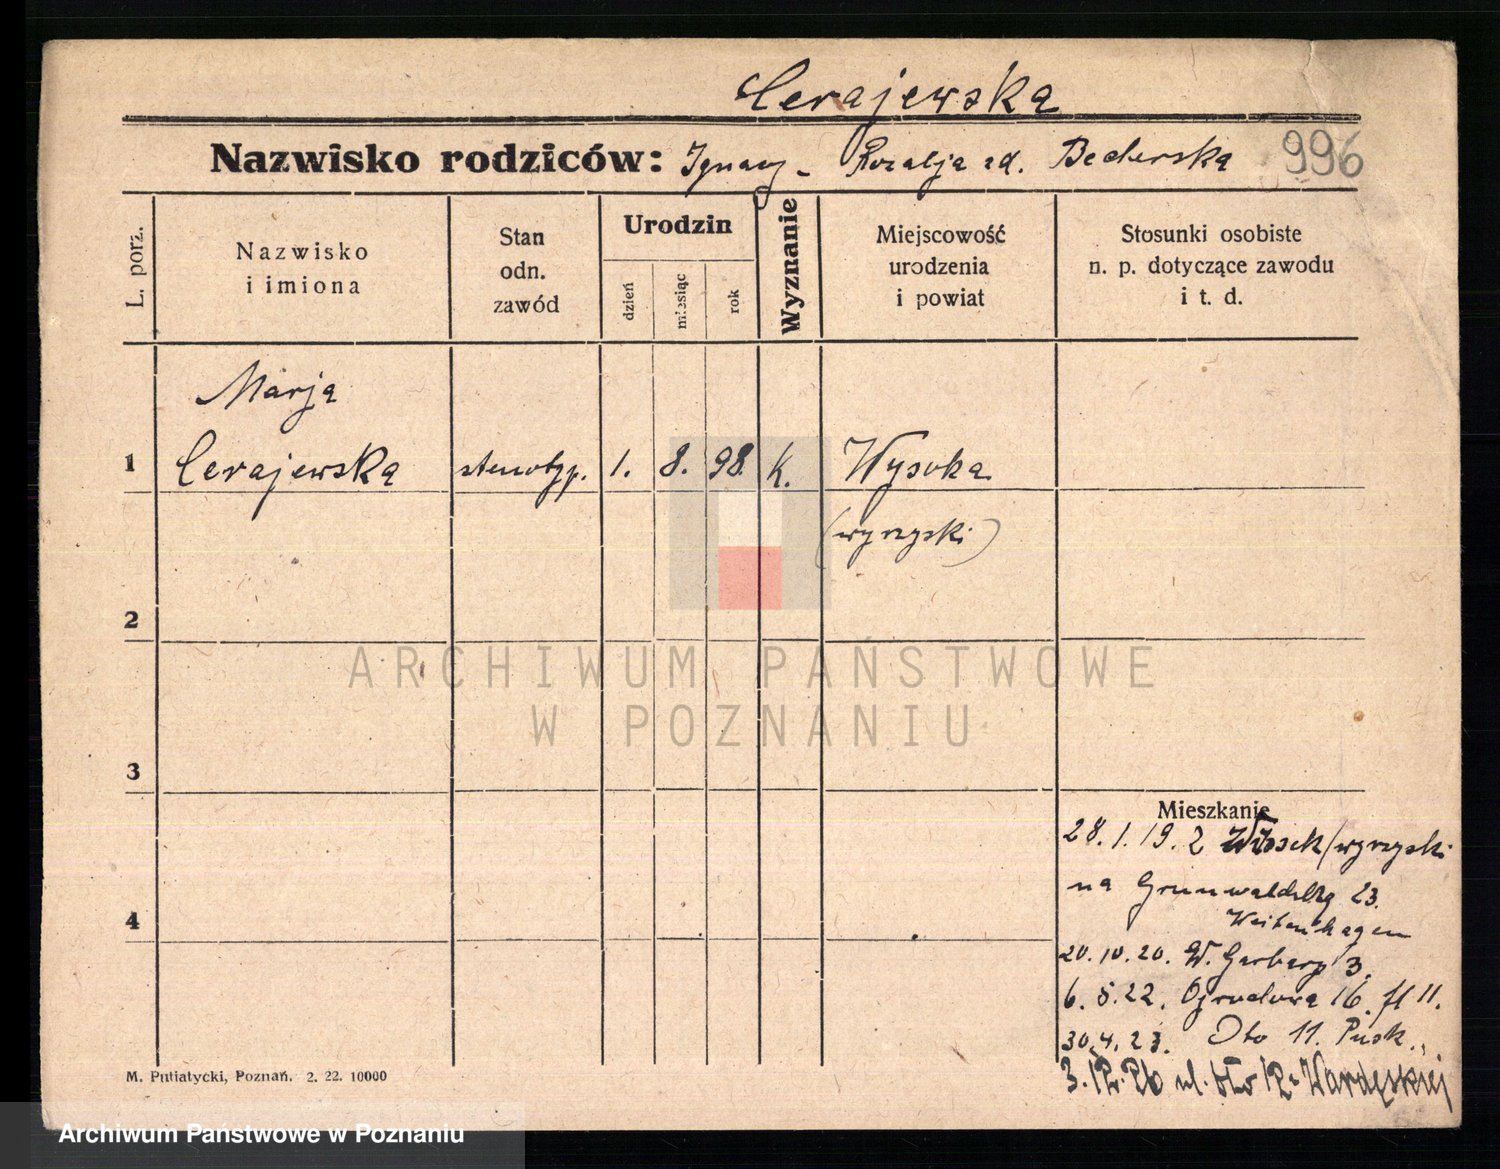 Cerajewska
Nazwisko rodziców: Ignacy - Rozalja zd. Bederska 996
L. porz.
Nazwisko
i imiona
Stan
odn.
zawód
Urodzin
dzień
miesiąc
rok
Wyznanie
Miejscowość
urodzenia
i powiat
Stosunki osobiste
n. p. dotyczące zawodu
i t. d.
Marja
1 Cerajewska stenotyp. 1. 8. 98. K. Wysoka
(wyrzyski)
2
3
4
Mieszkanie
28. 1. 19. z Włosek (wyrzyski
na Grunwaldzką 23.
Weitenhagen
20. 10. 20. W. Garbary 3.
6. 5. 22. Ogrodowa 16. 11.
30. 4. 23. Oto 11.
3. ul.
M. Putiatycki, Poznań. 2. 22. 10000
ARCHIWUM PAŃSTWOWE
W POZNANIU
Archiwum Państwowe w Poznaniu